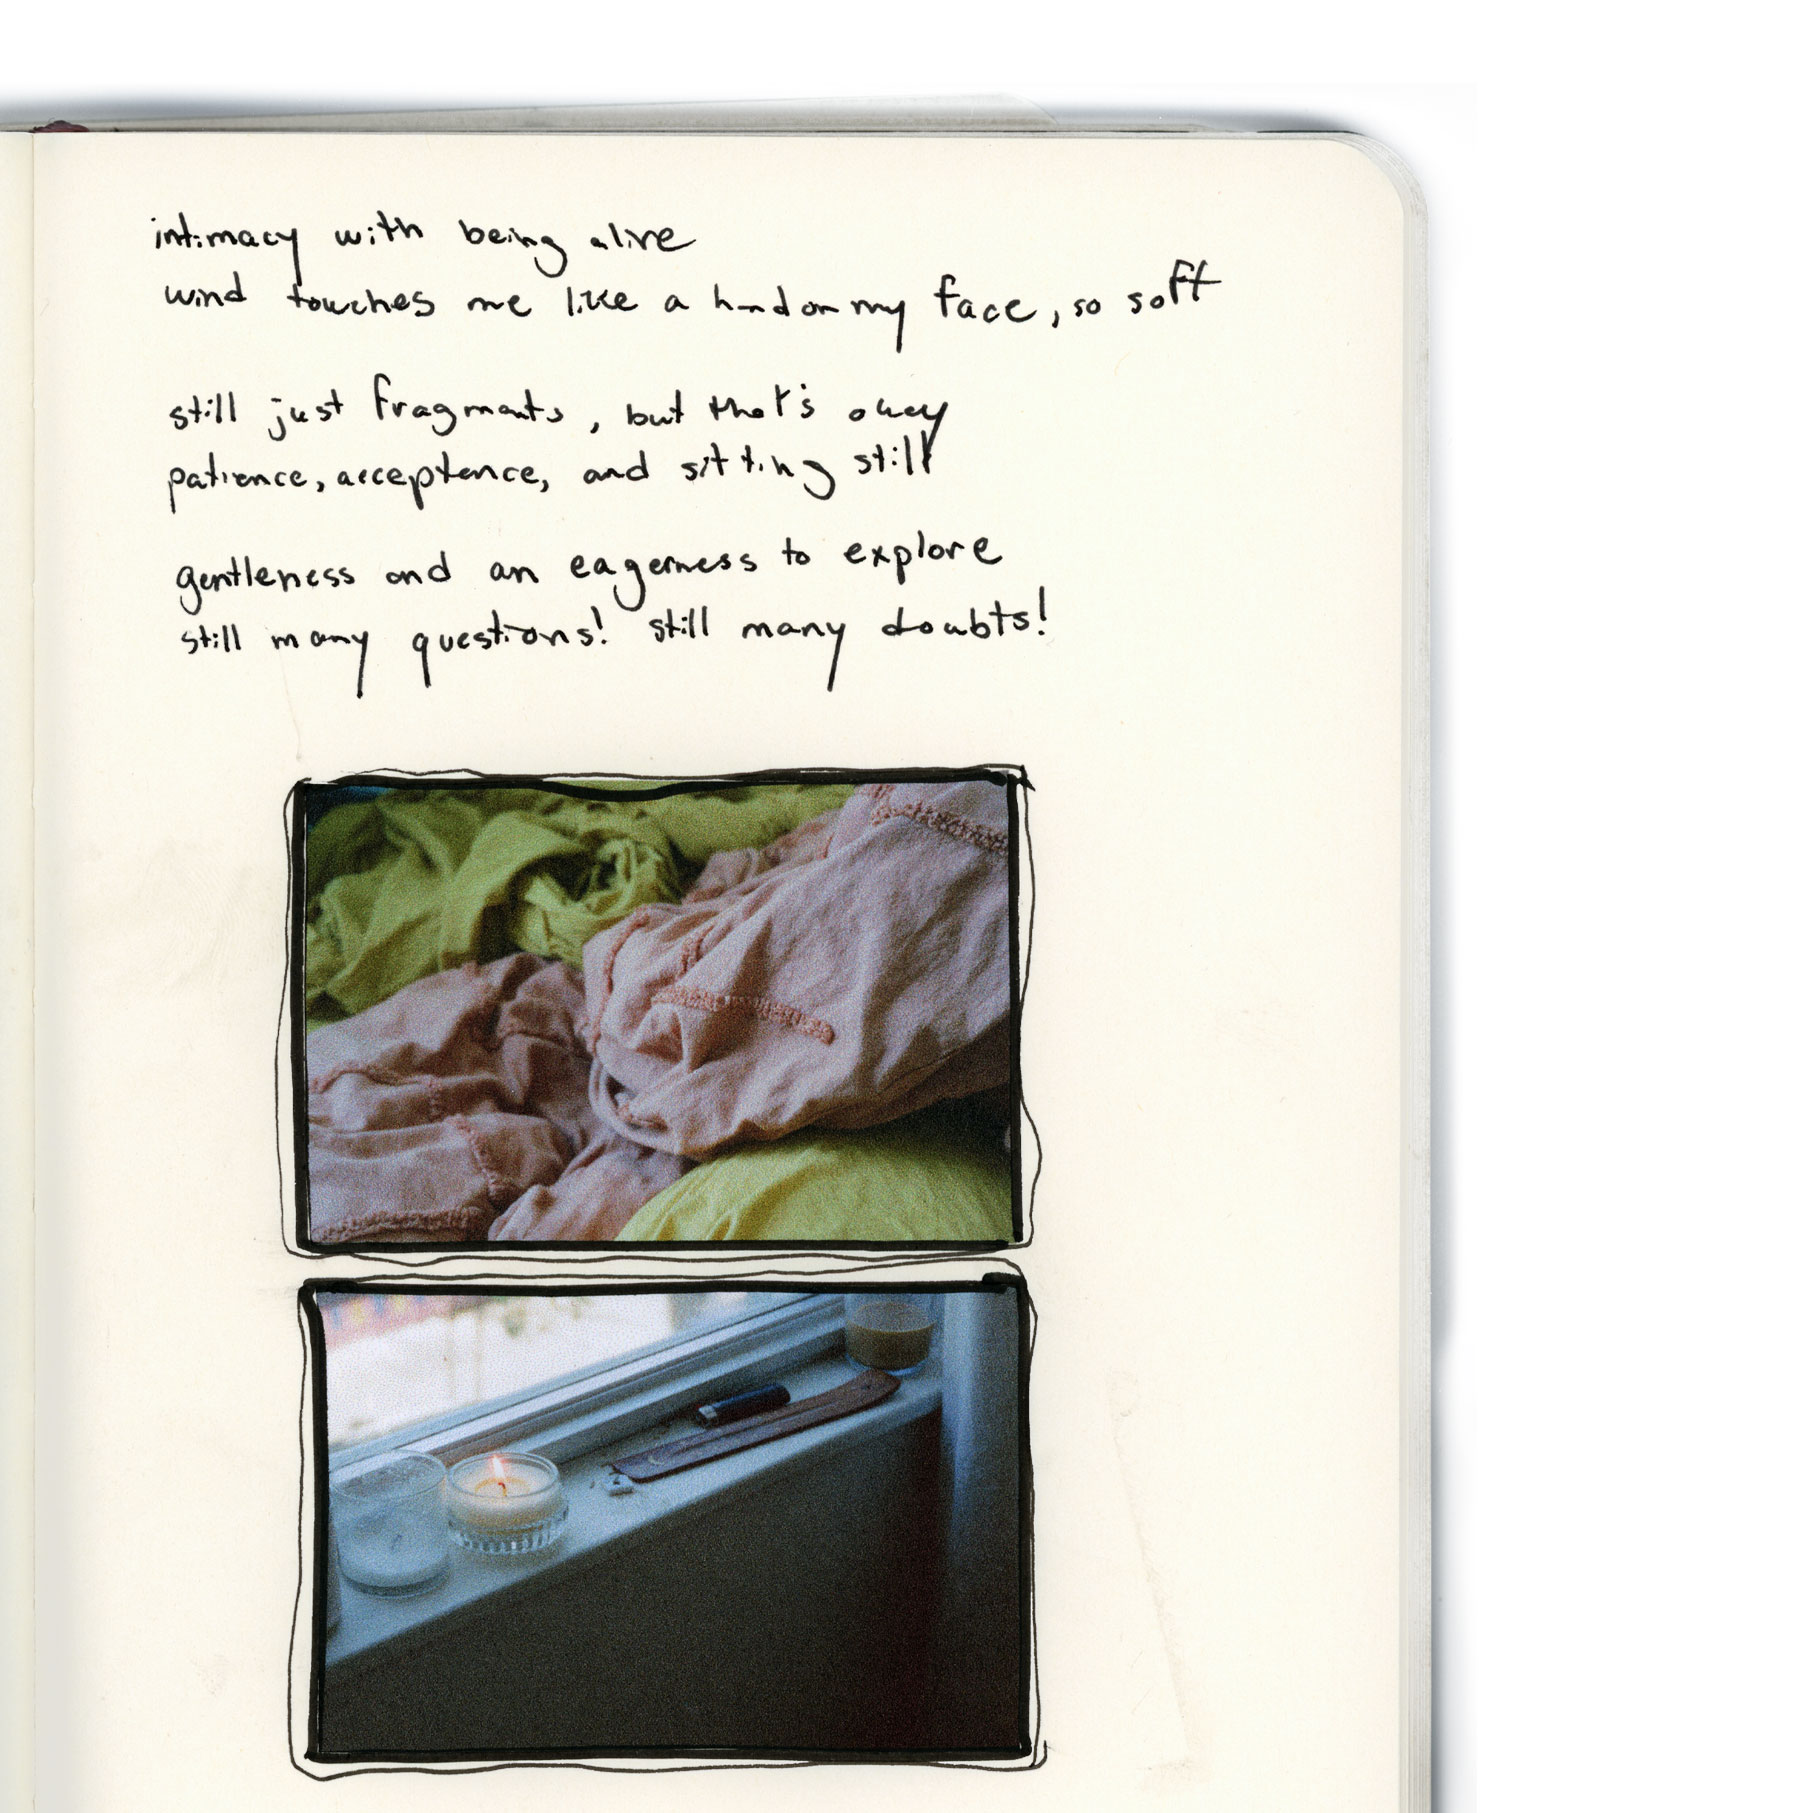 intimacy with being alive
wind touches me like a hand on my face, so soft
still just fragments, but that's okay
patience, acceptence, and sitting still
gentleness and an eagerness to explore
still many questions! still many doubts!